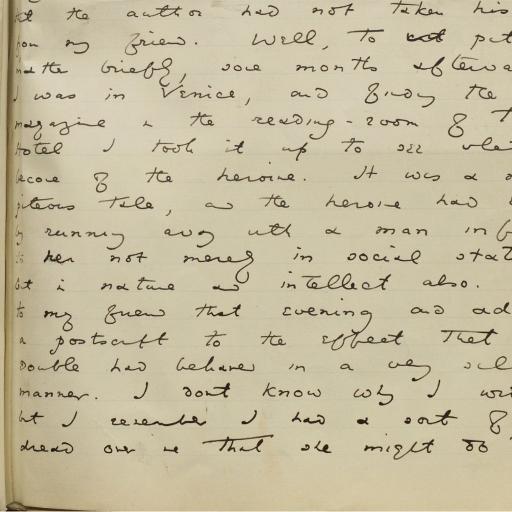 that the author had not taken his
from my friend. Well, to cut put
matter briefly, some months afterwa
I was in Venice, and finding the
magazine in the reading-room of t
Hotel I took it up to see what
become of the heroine. It was a
piteous tale, as the heroine had
by running away with a man inf
to her not merely in social stat
but in nature and intellect also.
to my friend that evening and ad
a postscript to the effect that
Double had behaved in a very
manner. I dont know why I wri
but I remember I had a sort of
dread over me that she might do